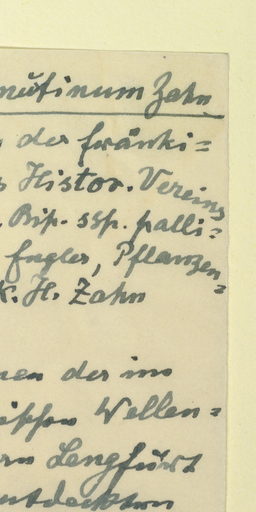 mutinum Zahn
der fränki=
s Histor. Vereins
. Bip. ssp. palli=
Engler, Pflanzen=
K. H. Zahn
nen der im
ischen Wellen=
rn Lengfurt
entdeckten